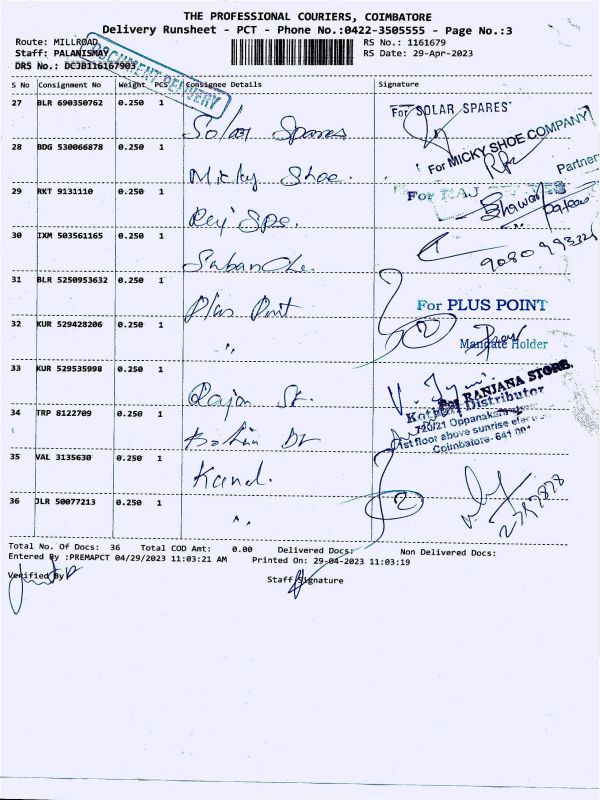 THE PROFESSIONAL COURIERS, COIMBATORE
Delivery Runsheet - PCT - Phone No.:0422-3505555 - Page No.:3
Route: MILLROAD
RS No.: 1161679
Staff: PALANISMAY
RS Date: 29-Apr-2023
DRS No.: DCJB116167903
DOCUMENT DELIVERY
S No Consignment No Weight PCS Consignee Details Signature
27 BLR 690350762 0.250 1 Solar Spares
For SOLAR SPARES
28 BDG 530066878 0.250 1 Micky Shoe.
For MICKY SHOE COMPANY
Partner
29 RKT 9131110 0.250 1 Raj Sps.
For RAJ
30 IXM 503561165 0.250 1
31 BLR 5250953632 0.250 1 Plus Point
For PLUS POINT
32 KUR 529428206 0.250 1 "
2
Mandate Holder
33 KUR 529535998 0.250 1 Rajan St.
For RANJANA STORE.
34 TRP 8122709 0.250 1
Distributor
720/21 Oppanakara
1st floor above sunrise
Coimbatore- 641
35 VAL 3135630 0.250 1
36 JLR 50077213 0.250 1 "
2
Total No. Of Docs: 36 Total COD Amt: 0.00 Delivered Docs: Non Delivered Docs:
Entered By :PREMAPCT 04/29/2023 11:03:21 AM Printed On: 29-04-2023 11:03:19
Verified By
Staff Signature